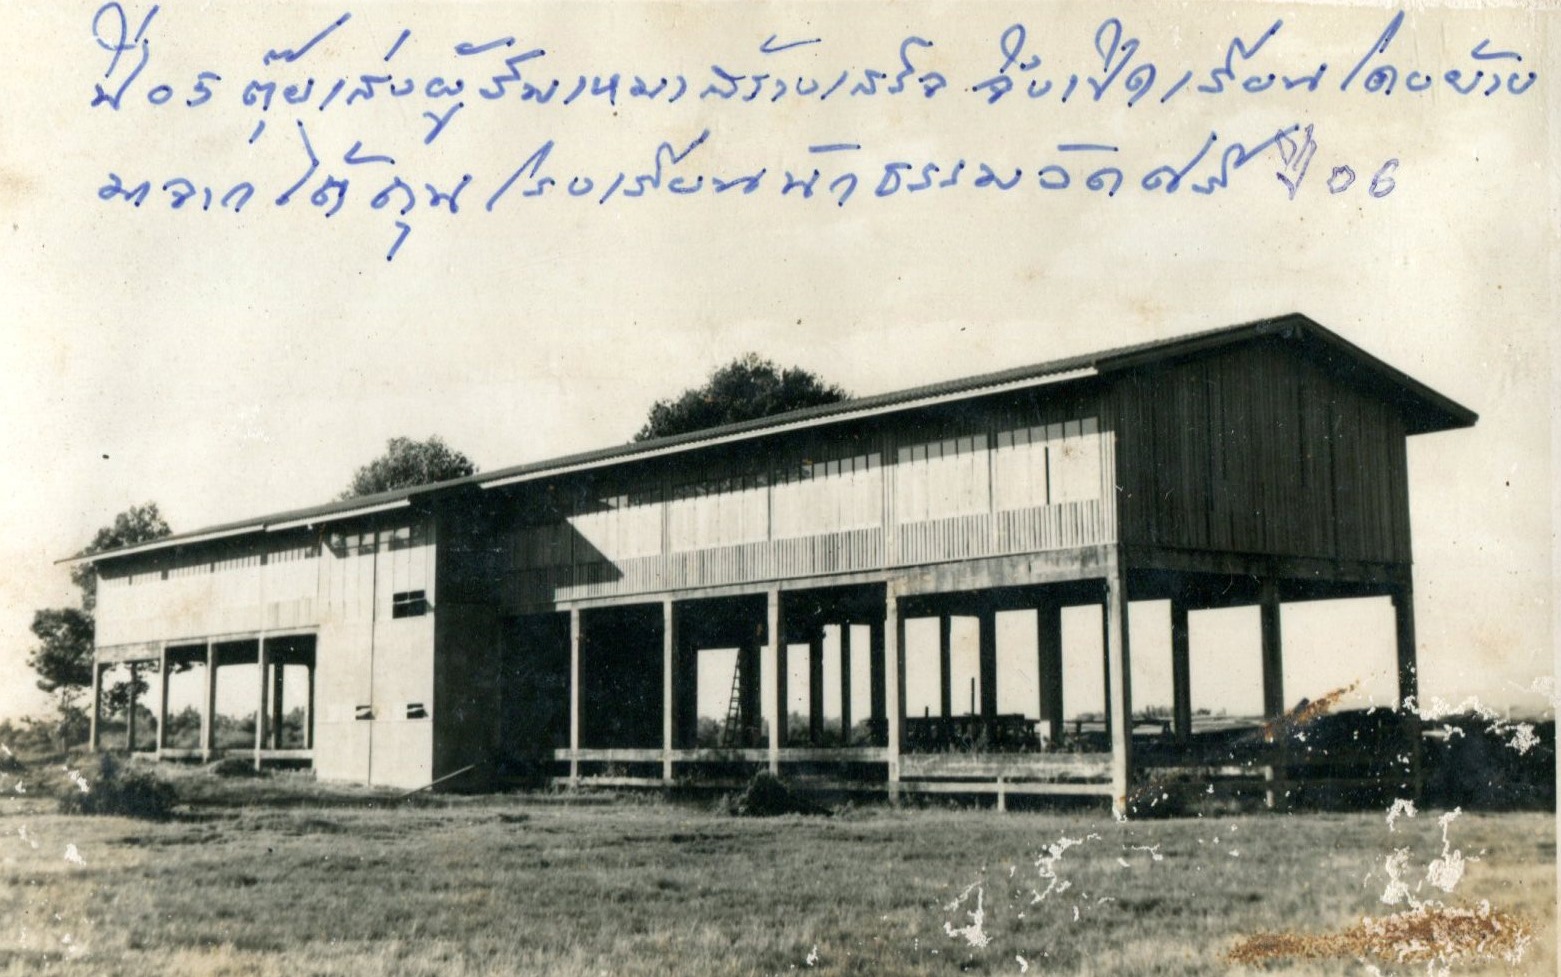 ปี ๐๕ ตุ๊ยเส่งผู้รับเหมาสร้างเสร็จ จึงเปิดเรียนโดยย้าย
มาจากใต้ถุนโรงเรียนนักธรรมวัดศรี ปี ๐๖